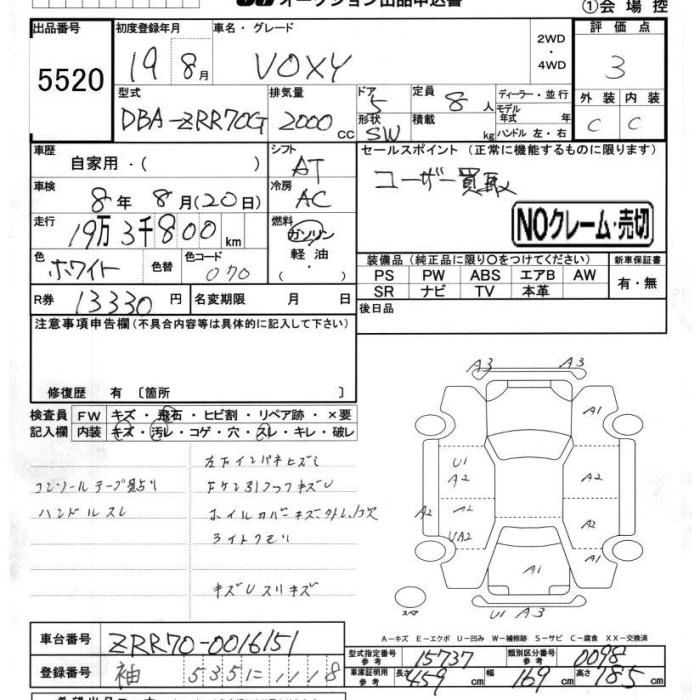 オークション出品申込書
①会場控
出品番号 初度登録年月 車名・グレード 2WD・4WD 評価点
5520 19 8月 VOXY 3
型式 排気量 ドア 5 定員 8人 ディーラー・並行 外装 内装
DBA-ZRR70G 2000cc 形状 SW 積載 kg モデル年式 年 ハンドル 左・右 C C
車歴 自家用・( ) シフト AT セールスポイント (正常に機能するものに限ります)
車検 8年 8月(20日) 冷房 AC ユーザー買取
走行 19万3千800km 燃料 ガソリン・軽油・( ) NOクレーム・売切
色 ホワイト 色替 色コード 070
装備品(純正品に限り○をつけてください) 新車保証書
PS PW ABS エアB AW 有・無
SR ナビ TV 本革
R券 13330円 名変期限 月 日 後日品
注意事項申告欄(不具合内容等は具体的に記入して下さい)
修復歴 有〔箇所 〕
検査員 FW キズ・飛石・ヒビ割・リペア跡・×要
記入欄 内装 キズ・汚レ・コゲ・穴・スレ・キレ・破レ
ハンドルスレ
A3 A3
A1
U1
A2 A2
A2 A2 A2
UA2
A1
U1 A3
スペア
A-キズ E-エクボ U-凹み W-補修跡 S-サビ C-腐食 XX-交換済
車台番号 ZRR70-0016151
型式指定番号 参考 15737 類別区分番号 参考 0098
登録番号 袖 535に1118
車庫証明用 参考 長さ 459 幅 169 高さ 185cm